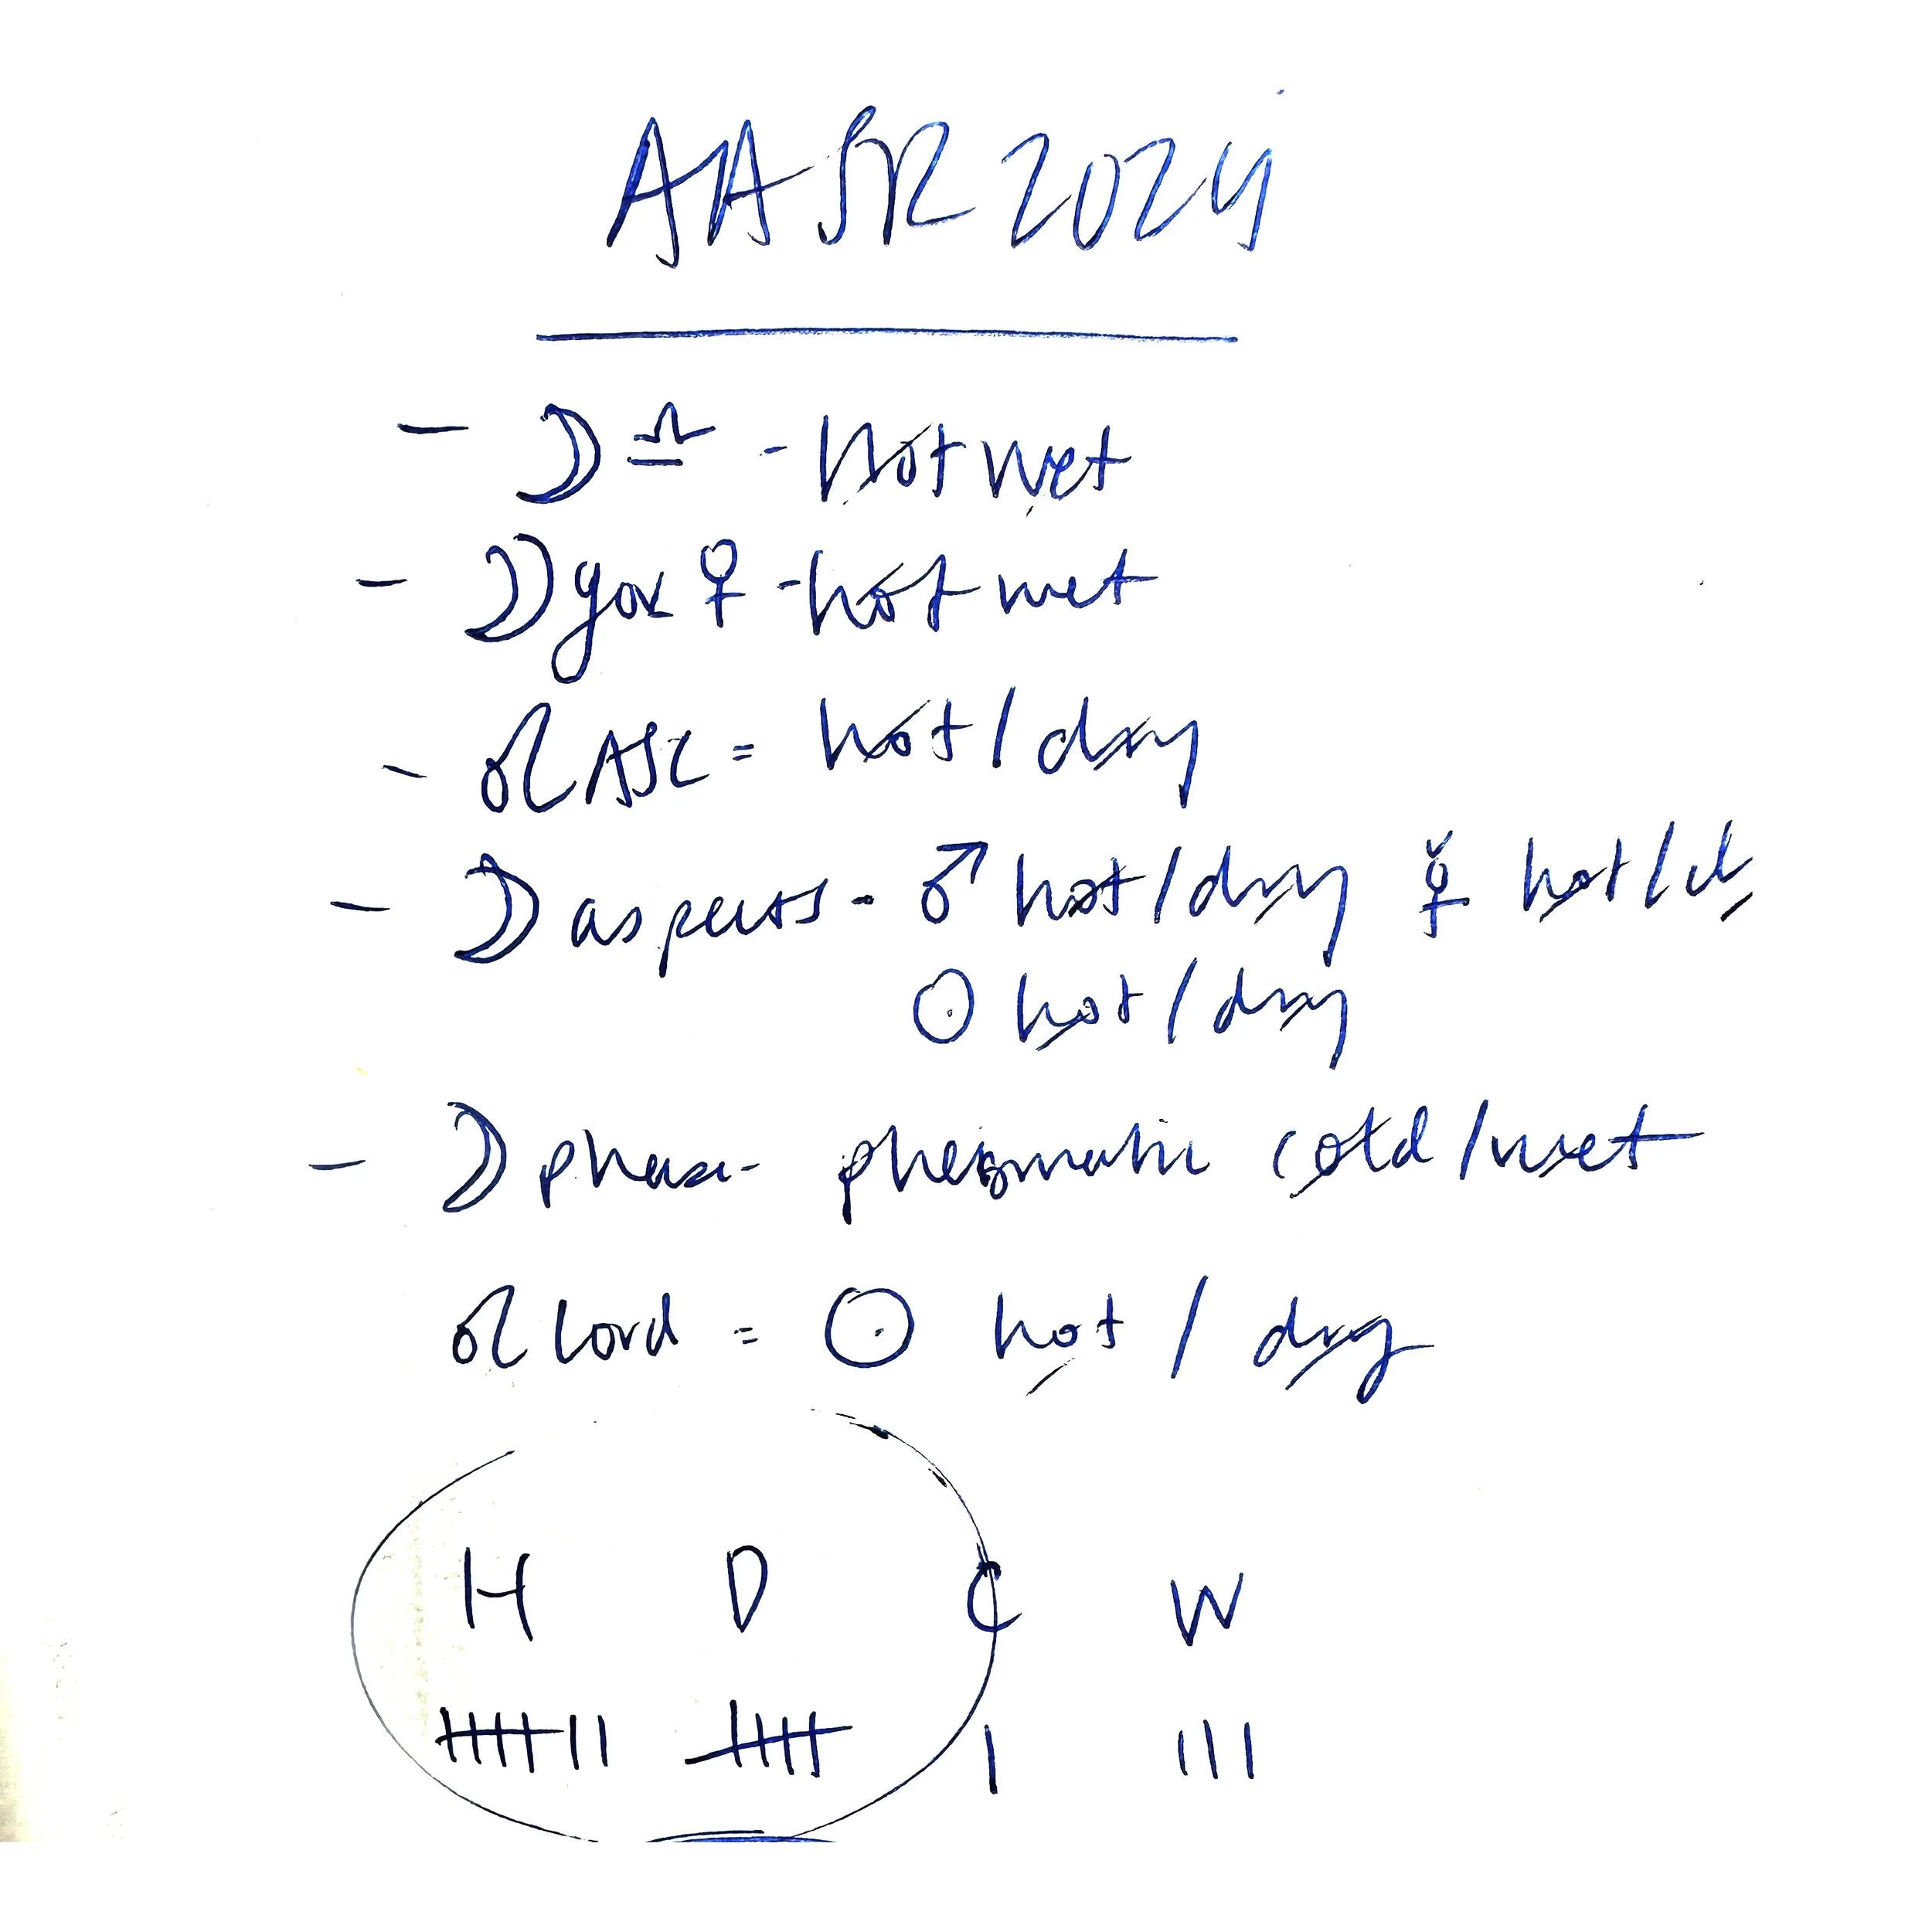 AA SR 2024
- ☽ ♎ - Hot wet
- ☽ gov ♀ - hot wet
- ♌ ASC = hot/dry
- ☽ aspects - ♂ hot/dry ☿ hot/d
☉ hot/dry
- ☽ phase - phlegmatic cold/wet
♌ Lord = ☉ hot / dry
H D C W
𝍸|| 𝍸 | |||